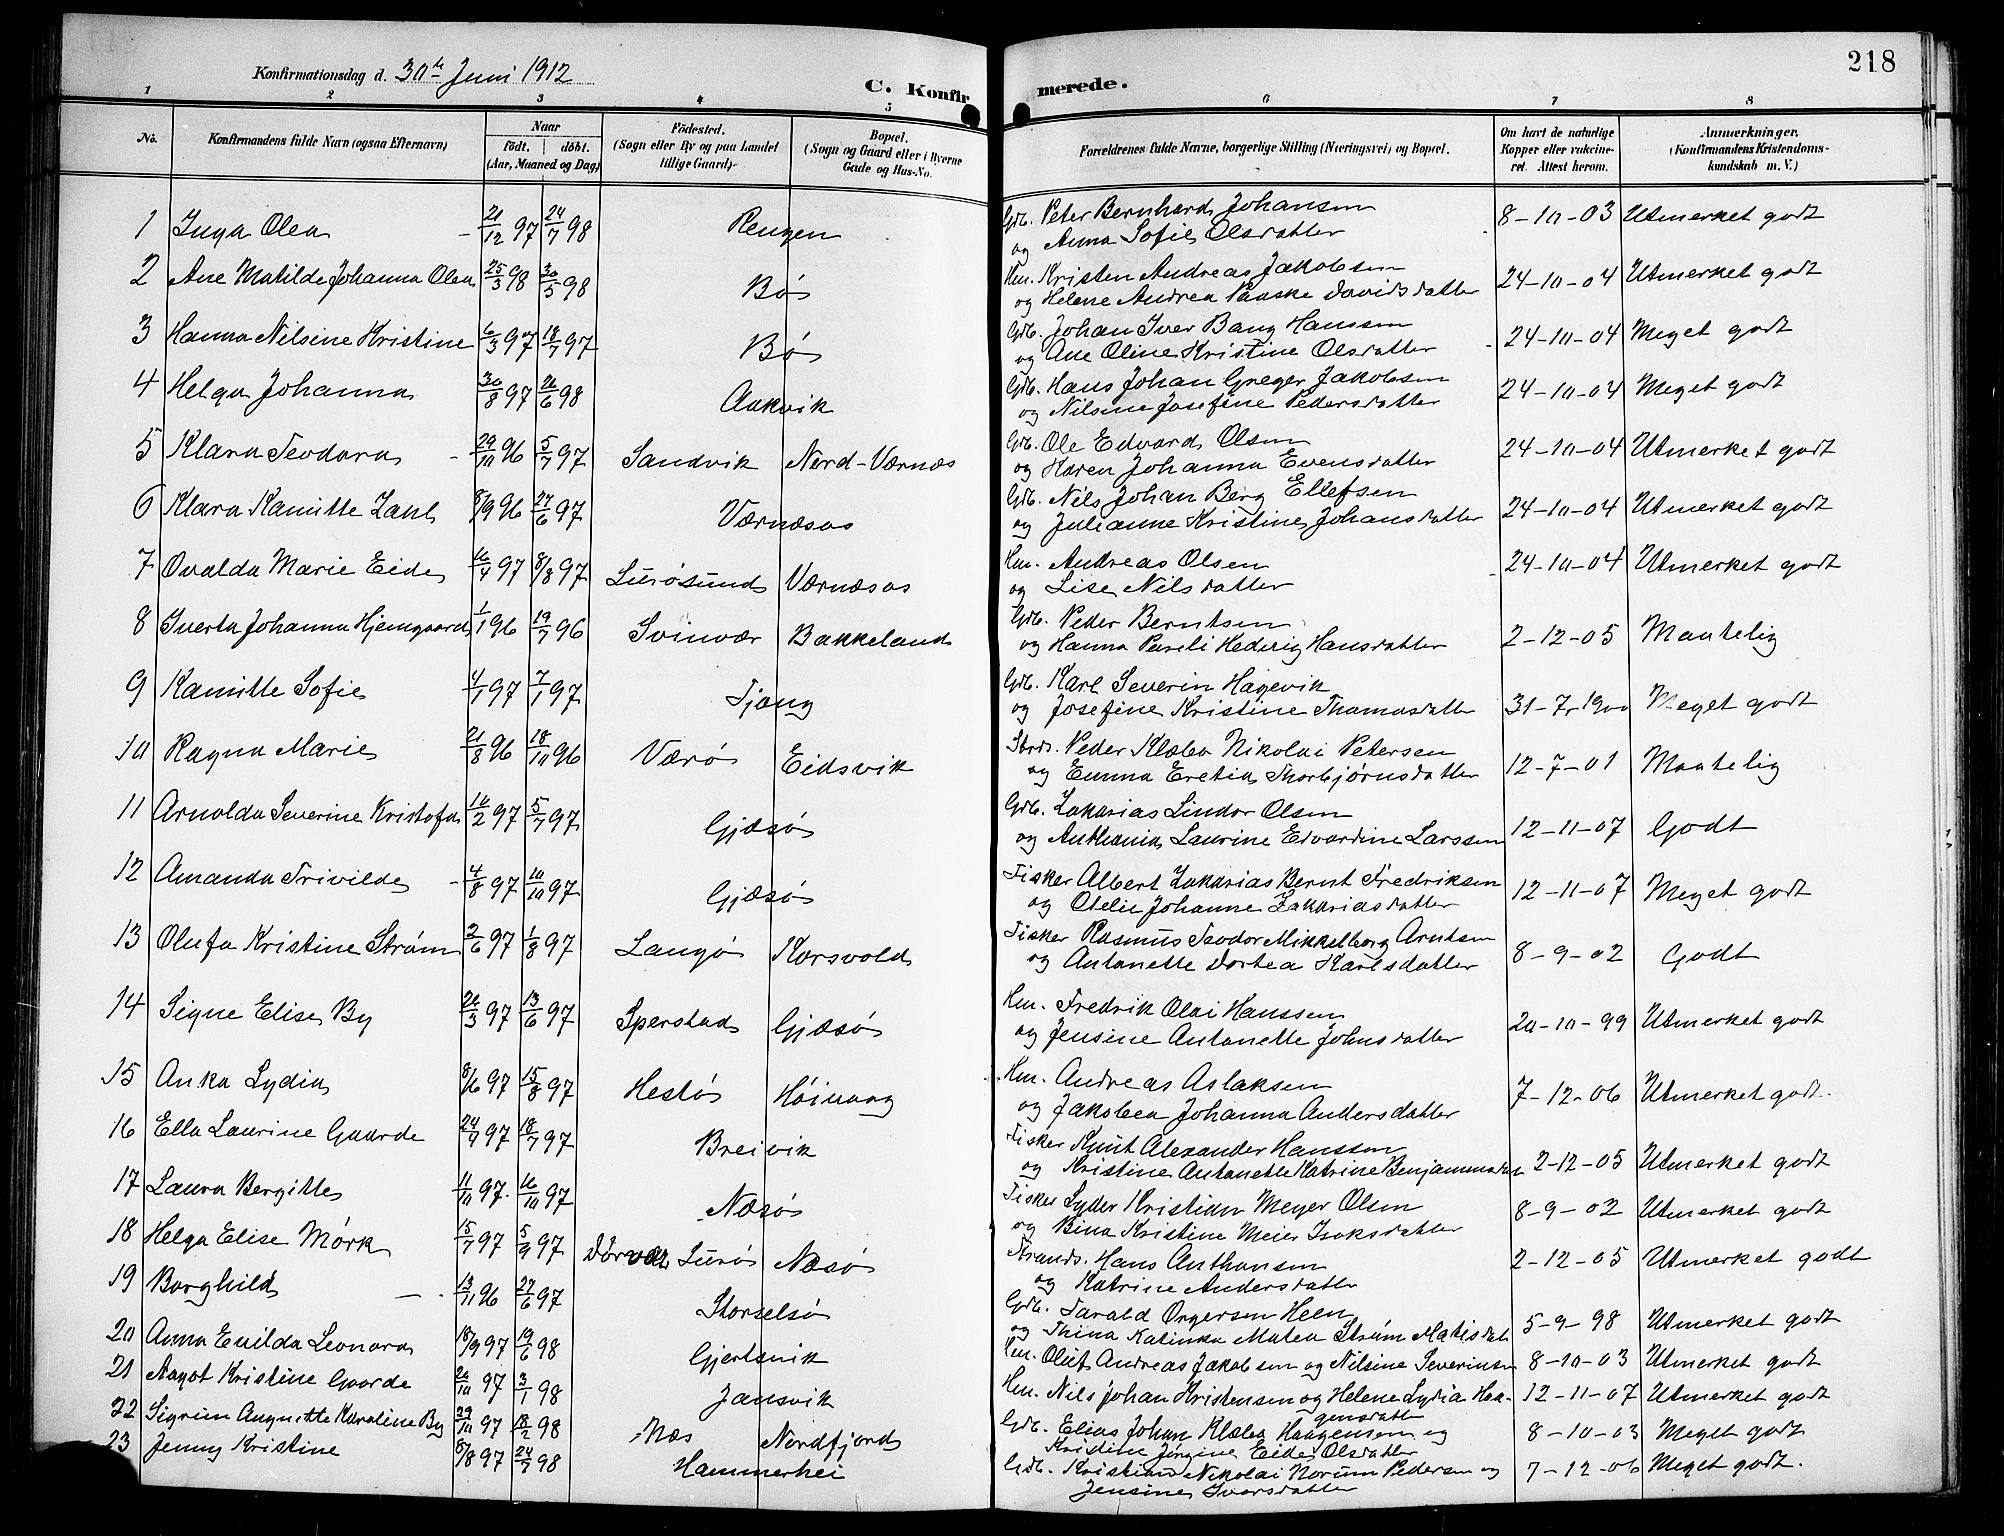 218
Konfirmationsdag d. 30te Juni 1912
C. Konfirmerede.
1 2 3 4 5 6 7 8
No.
Konfirmandens fulde Navn (ogsaa Efternavn)
Naar
födt. döbt.
(Aar, Maaned og Dag)
Födested.
(Sogn eller By og paa Landet
tillige Gaard).
Bopæl.
(Sogn og Gaard eller i Byerne
Gade og Hus-No.
Forældrenes fulde Navne, borgerlige Stilling (Næringsvei) og Bopæl.
Om havt de naturlige
Kopper eller vakcine-
ret. Attest herom.
Anmærkninger.
(Konfirmandens Kristendoms-
kundskab m. V.)
1 Inga Olea 21/12 97 24/7 98 Rengen Gdb. Peter Bernhard Johansen 8-10-03 Utmerket godt
og Anna Sofie Olsdatter
2 Ane Matilde Johanna Olea 25/3 98 30/5 98 Bø Hm. Kristen Andreas Jakobsen 24-10-04 Utmerket godt
og Helene Andrea Paaske Davidsdatter
3 Hanna Nilsine Kristine 6/3 97 18/7 97 Bø Gdb. Johan Iver Bang Hanssen 24-10-04 Meget godt
og Ane Oline Kristine Olsdatter
4 Helga Johanna 30/8 97 26/6 98 Aakvik Gdb. Hans Johan Greger Jakobsen 24-10-04 Meget godt
og Nilsine Josefine Pedersdatter
5 Klara Teodora 29/10 96 5/7 97 Sandvik Nord-Værnæs Gdb. Ole Edvard Olsen 24-10-04 Utmerket godt
og Karen Johanna Evensdatter
6 Klara Kamitte 8/9 96 27/6 97 Værnæsos Gdb. Nils Johan Berg Ellefsen 24-10-04 Utmerket godt
og Julianne Kristine Johansdatter
7 Ovalda Marie Eide 16/4 97 8/8 97 Lurøsund Værnæsos Hm. Andreas Olsen 24-10-04 Utmerket godt
og Lise Nilsdatter
8 Sverta Johanna Hjemgaard 1/1 96 19/7 96 Svinvær Bakkeland Gdb. Peder Berntsen 2-12-05 Maatelig
og Hanna Pareli Hedevig Hansdatter
9 Kamitte Sofie 4/1 97 7/1 97 Tjong Gdb. Karl Severin Hagevik 31-7-1900 Meget godt
og Josefine Kristine Thomasdatter
10 Ragna Marie 21/8 96 18/10 96 Værø Eidsvik Peder Klæbo Nikolai Petersen 12-7-01 Maatelig
og Emma Eretia Thorbjørnsdatter
11 Arnolda Severine Kristofa 10/2 97 5/7 97 Gjæsø Gdb. Zakarias Lindor Olsen 12-11-07 Godt
og Anthania Laurine Edvardine Larssen
12 Amanda Trivilde 4/8 97 10/10 97 Gjæsø Fisker Albert Zakarias Bernt Fredriksen 12-11-07 Meget godt
og Otelie Johanne Zakariasdatter
13 Olufa Kristine Strøm 2/6 97 1/8 97 Langø Korsvold Fisker Rasmus Teodor Mikkelborg Arntsen 8-9-02 Godt
og Antonette Dortea Karlsdatter
14 Signe Elise By 26/3 97 13/6 97 Sperstad Gjæsø Hm. Fredrik Olai Hanssen 20-10-99 Utmerket godt
og Jensine Antonette Johnsdatter
15 Anka Lydia 8/6 97 15/8 97 Hestø Høivaag Hm. Andreas Aslaksen 7-12-06 Utmerket godt.
og Jakobea Johanna Andersdatter
16 Ella Laurine Gaarde 24/4 97 18/7 97 Breivik Fisker Knut Alexander Hanssen 2-12-05 Utmerket godt
og Kristine Antonette Katrine Benjaminsdtr
17 Laura Bergitte 11/10 97. 16/10 97 Næsø Fisker Lyder Kristian Meyer Olsen 8-9-02 Utmerket godt
og Bina Kristine Meier Isaksdatter
18 Helga Elise Mörk 15/7 97 5/9 97 Dørvær Lurø Næsø Strands. Hans Anthonsen 2-12-05 Utmerket godt
og Katrine Andersdatter
19 Borghild 13/11 96 27/6 97 Storselsø Gdb. Tarald Ongersen Heen 5-9-98 Utmerket godt
og Thina Katinka Matea Strøm Matisdat
20 Anna Evilda Leonora 18/9 97 19/6 98 Gjertsvik Hm. Oluf Andreas Jakobsen og Nilsine Severinsen 8-10-03 Utmerket godt
21 Aagot Kristine Gaarde 26/10 97 3/1 98 Jansvik Hm. Nils Johan Kristensen og Helene Lydia Haa- 12-11-07 Utmerket godt
gensdatter
22 Sigrun Augnette Karoline By 29/10 97 18/2 98 Næs Nordfjord Gdb. Elias Johan Klæbo Haagensen og 8-10-03 Meget godt
Kristine Jørgine Eide Olsdatter
23 Jenny Kristine 8/8 97 24/7 98 Hammerhei Gdb. Kristian Nikolai Norum Pedersen og 7-12-06 Meget godt.
Jensine Ivarsdatter